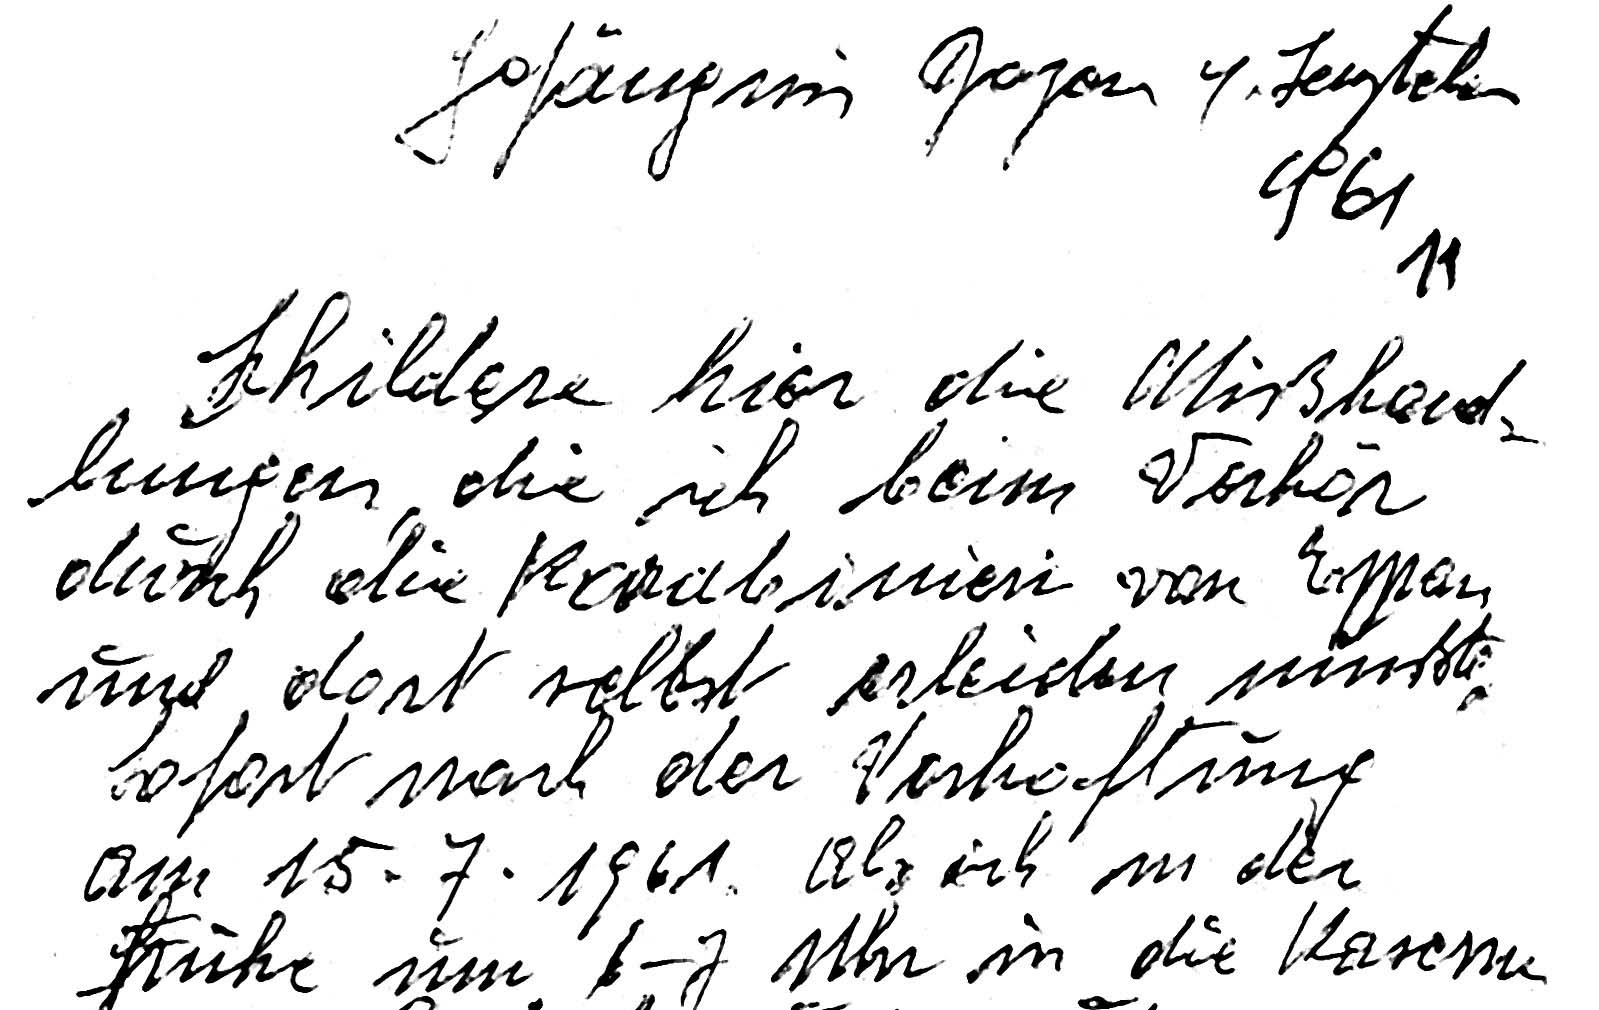 Gefängnis Bozen 4. September
1961
11
Schildere hier die Mißhand-
lungen die ich beim Verhör
durch die Karabinieri von Eppan
und dort selbst erleiden mußte.
Sofort nach der Verhaftung
am 15. 7. 1961. Als ich in der
Frühe um 6-7 Uhr in die Kaserne